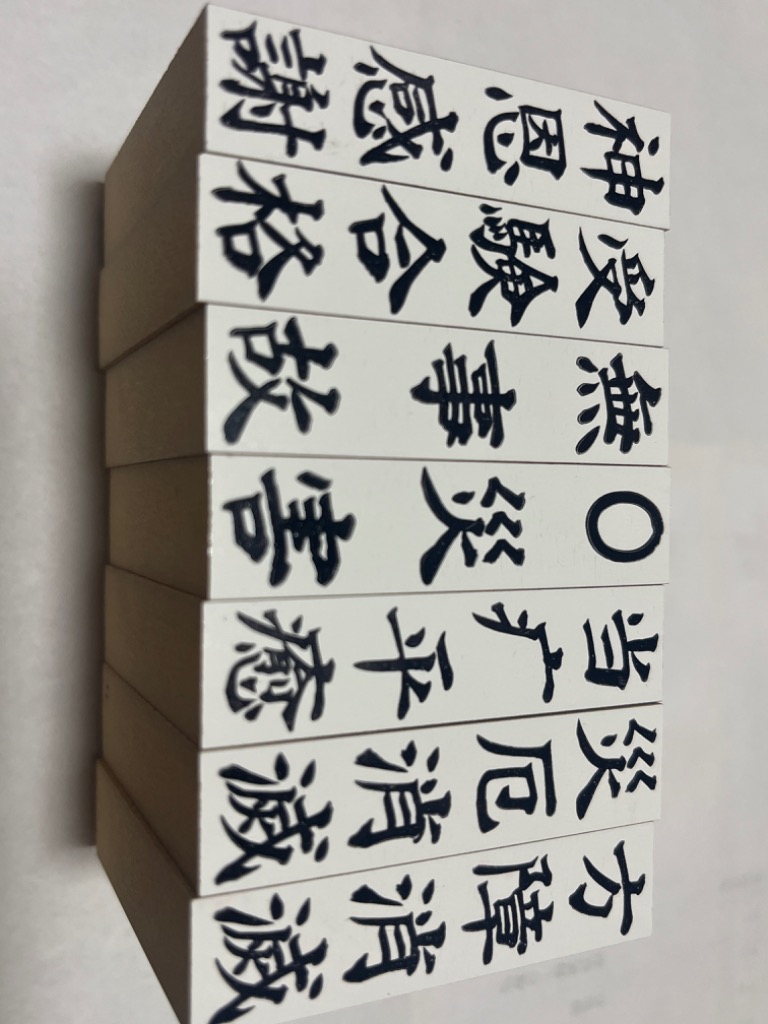 方障消滅
災厄消滅
当广平癒
〇災害
無事故
受験合格
神恩感謝